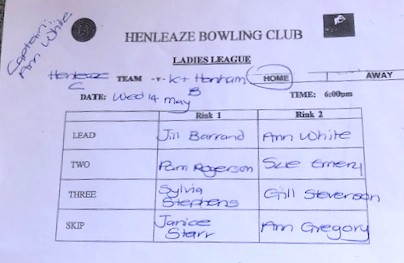 Captain:
Ann White
HENLEAZE BOWLING CLUB
LADIES LEAGUE
Henleaze C TEAM -v- K+ Hanham B HOME AWAY
DATE: Wed 14 May TIME: 6:00pm
Rink 1 Rink 2
LEAD Jill Barrand Ann White
TWO Pam Rogerson Sue Emery
THREE Sylvia Stephens Gill Stevenson
SKIP Janice Starr Ann Gregory